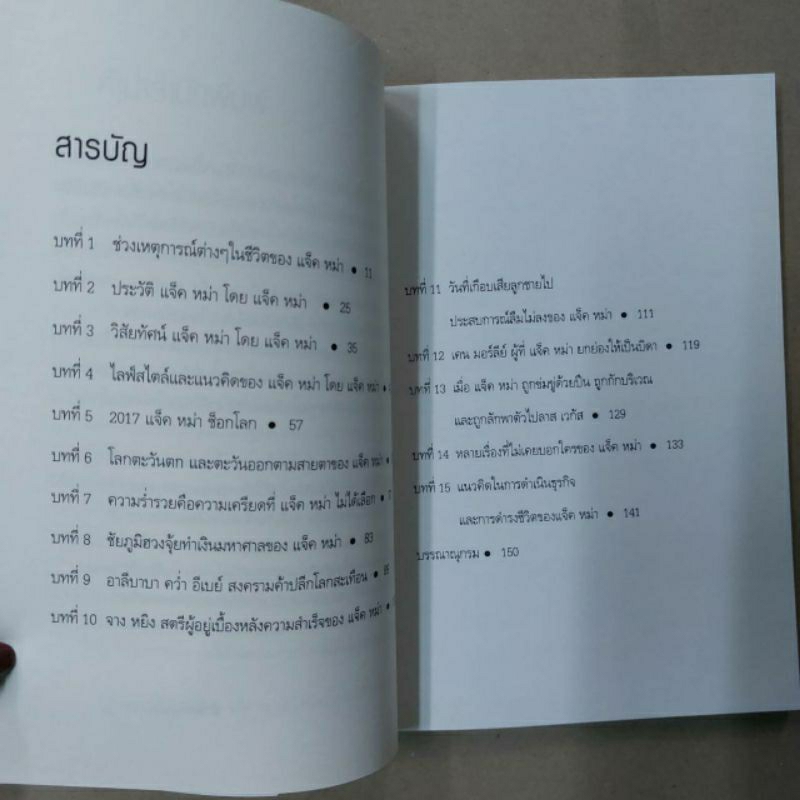 สารบัญ
บทที่ 1 ช่วงเหตุการณ์ต่างๆในชีวิตของ แจ็ค หม่า ● 11
บทที่ 2 ประวัติ แจ็ค หม่า โดย แจ็ค หม่า ● 25
บทที่ 3 วิสัยทัศน์ แจ็ค หม่า โดย แจ็ค หม่า ● 35
บทที่ 4 ไลฟ์สไตล์และแนวคิดของ แจ็ค หม่า โดย แจ็ค หม่า ●
บทที่ 5 2017 แจ็ค หม่า ช็อกโลก ● 57
บทที่ 6 โลกตะวันตก และตะวันออกตามสายตาของ แจ็ค หม่า ●
บทที่ 7 ความร่ำรวยคือความเครียดที่ แจ็ค หม่า ไม่ได้เลือก ●
บทที่ 8 ชัยภูมิฮวงจุ้ยทำเงินมหาศาลของ แจ็ค หม่า ● 83
บทที่ 9 อาลีบาบา คว่ำ อีเบย์ สงครามค้าปลีกโลกสะเทือน ●
บทที่ 10 จาง หยิง สตรีผู้อยู่เบื้องหลังความสำเร็จของ แจ็ค หม่า ●
บทที่ 11 วันที่เกือบเสียลูกชายไป
ประสบการณ์ลืมไม่ลงของ แจ็ค หม่า ● 111
บทที่ 12 เคน มอร์ลีย์ ผู้ที่ แจ็ค หม่า ยกย่องให้เป็นบิดา ● 119
บทที่ 13 เมื่อ แจ็ค หม่า ถูกข่มขู่ด้วยปืน ถูกกักบริเวณ
และถูกลักพาตัวไปลาส เวกัส ● 129
บทที่ 14 หลายเรื่องที่ไม่เคยบอกใครของ แจ็ค หม่า ● 133
บทที่ 15 แนวคิดในการดำเนินธุรกิจ
และการดำรงชีวิตของแจ็ค หม่า ● 141
บรรณาณุกรม ● 150